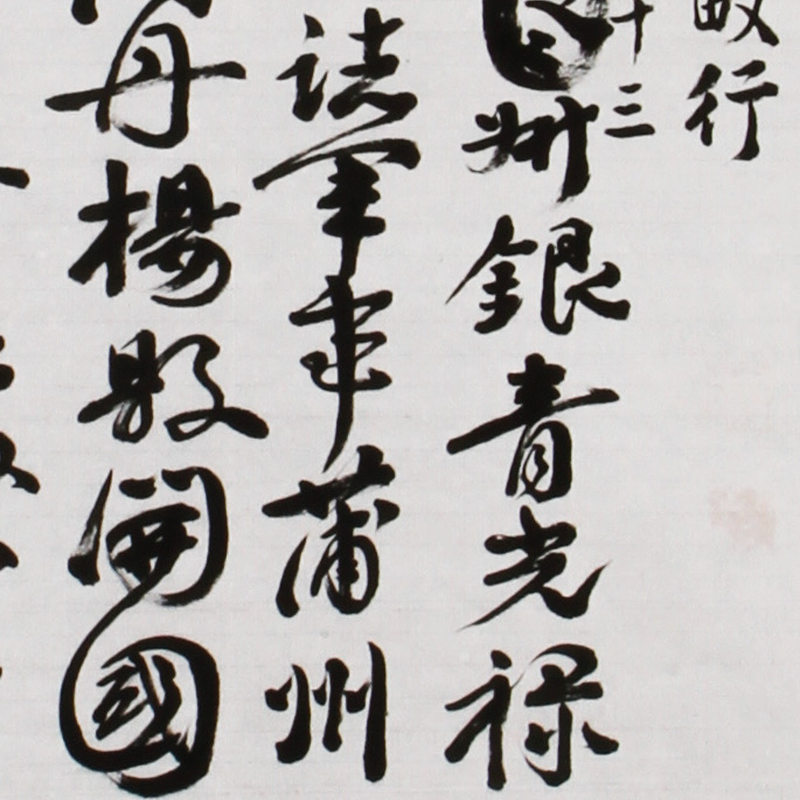 行
十三
叔銀青光祿
諸軍事蒲州
丹楊縣開國